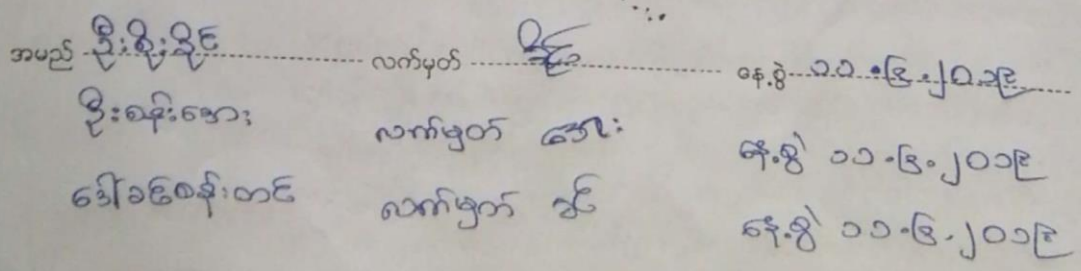 အမည် ဦးစိုးခိုင် လက်မှတ် ခိုင် နေ့စွဲ ၁၁.၆.၂၀၁၉
ဦးစန်းအေး လက်မှတ် အေး နေ့စွဲ ၁၁.၆.၂၀၁၉
ဒေါ်ခင်စန်းတင် လက်မှတ် ခင် နေ့စွဲ ၁၁.၆.၂၀၁၉